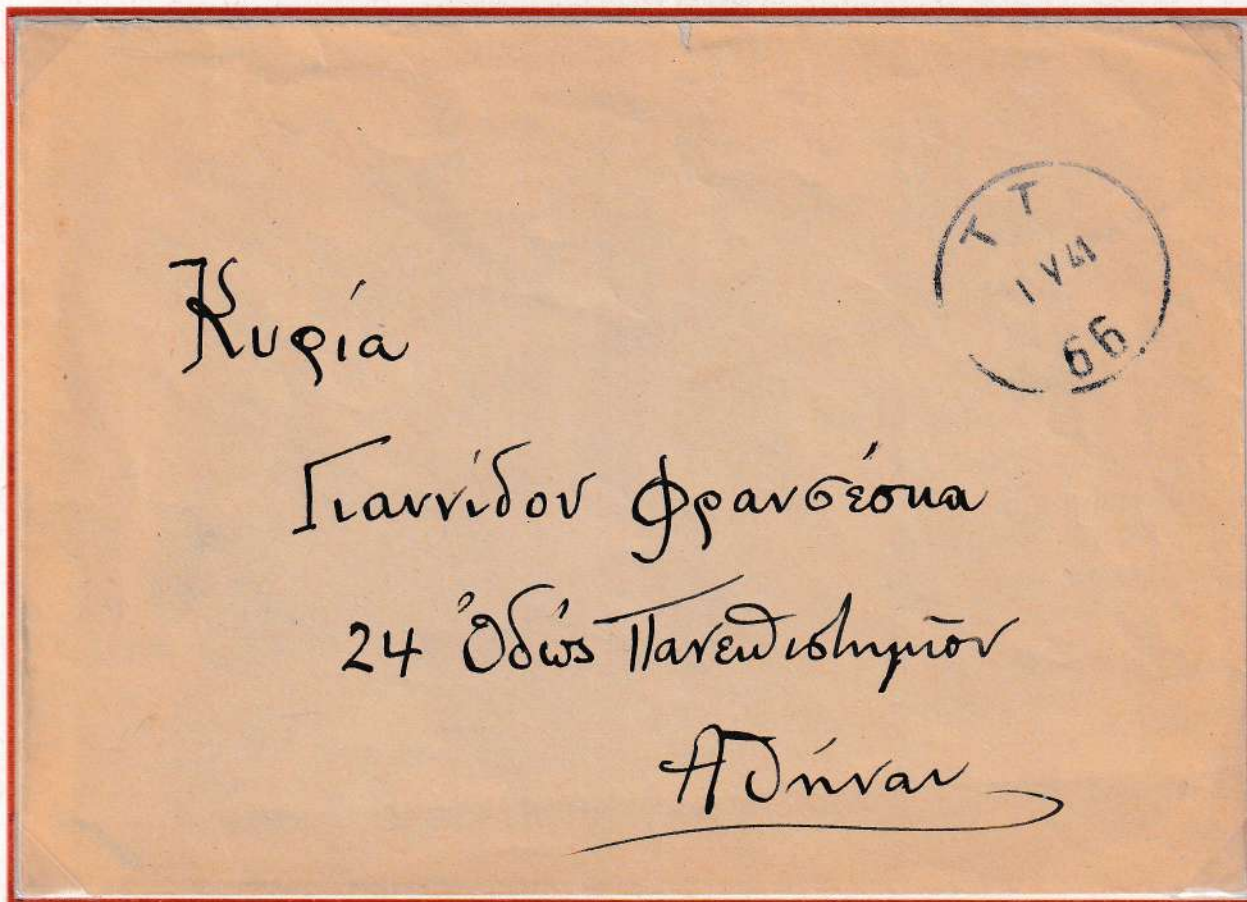 Τ Τ
1 V 41
66
Κυρία
Γιαννίδου Φρανσέσκα
24 Ὁδώς Πανεπιστημίου
Αθήναι